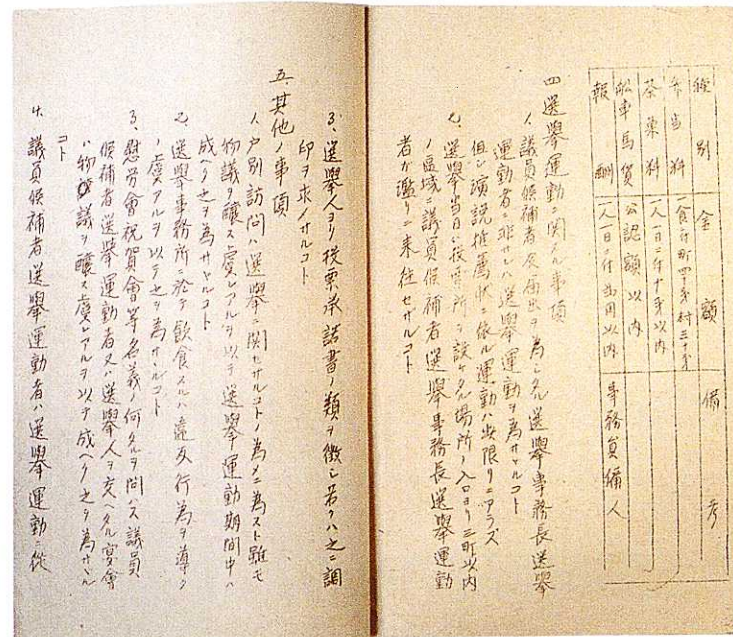 種別 金額 備考
弁当料 一食ニ付町四十銭村三十銭
茶菓料 一人一日ニ付十銭以内
船車馬賃 公認額以内
報酬 一人一日ニ付 円以内 事務員傭人
四、選擧運動ニ関スル事項
1、議員候補者及届出ヲ為シタル選擧事務長選擧
運動者ニ非サレハ選擧運動ヲ為サヽルコト
但シ演説推薦状ニ依ル運動ハ此限リニアラズ
2、選擧当日ハ投票所ヲ設ケタル場所ノ入口ヨリ三町以内
ノ區域ニ議員候補者選擧事務長選擧運動
者ガ濫リニ来往セサルコト
3、選擧人ヨリ投票承諾書ノ類ヲ徴シ若クハ之ニ調
印ヲ求メサルコト
五、其他ノ事項
1、戸別訪問ハ選擧ニ関セサルコトノ為メニ為スト雖モ
物議ヲ醸ス虞レアルヲ以テ選擧運動期間中ハ
成ヘク之ヲ為サヽルコト
2、選擧事務所ニ於テ飲食スルハ違反行為ヲ導ク
ノ虞アルヲ以テ之ヲ為サヽルコト
3、慰労會祝賀會等名義ノ何タルヲ問ハス議員
候補者選擧運動者又ハ選擧人ヲ交ヘタル宴會
ハ物議ヲ醸ス虞レアルヲ以テ成ヘク之ヲ為サヽル
コト
4、議員候補者選擧運動者ハ選擧運動ニ從